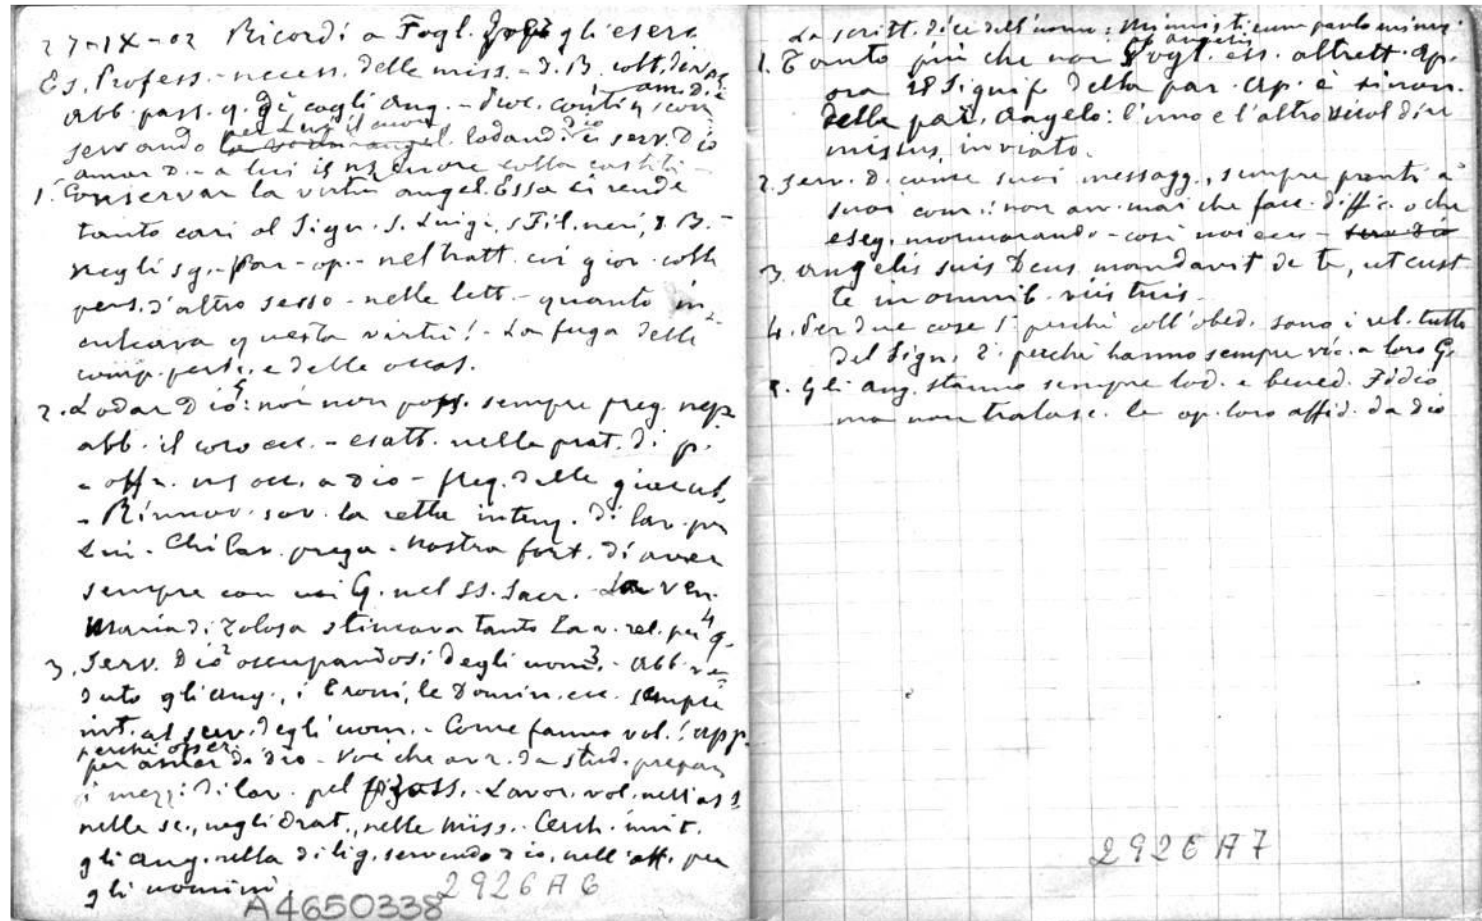 27-IX-02 Ricordi a Fogl. gli eserc
Es. Profess. - necess. delle miss. - D. B. volt.
abb. pass. q. dì cogli ang. - am. D. i
servando per Lui il cuore angel. lodand. Dio e serv. Dio
amar D. - a lui il ns cuore colla castità -
1. Conservar la virtù angel. Essa ci rende
tanto cari al Sign. S. Luigi, s Fil. neri, D. B. -
negli sg. - par - op. - nel tratt. coi giov. colle
pers. d'altro sesso - nelle lett. - quanto in=
culcava questa virtù! - La fuga delle
comp. peric. e delle occas.
2. Lodar Dio 5: noi non poss. sempre preg. nep
abb. il coro ecc. - esatt. nelle prat. di pi.
- off. ns occ. a Dio - freq. delle giacul.
- Rinnov. sov. la retta intenz. di lav. per
Lui - Chi lav. prega - nostra fort. di aver
sempre con noi G. nel SS. Sacr. - La ven.
Maria di Tolosa stimava tanto la v. rel. per 4 q.
3. Serv. Dio 2 occupandosi degli uom. 3 - abb. ve=
duto gli ang., i Troni, le Domin. ecc. sempre
int. al serv. degli uom. - Come fanno vol.! app.
perchè oper.
per amor di Dio - Voi che avr. da stud. prepar
i mezzi di lav. pel pross. - Lavor. vol. nell'ass
nelle sc., negli Orat., nelle Miss. - Cerch. imit.
gli ang. nella dilig. servendo Dio, nell'aff. per
gli uomini.
A4650338 2926A6
La scritt. dice dell'uomo: Minuisti eum paulo minus
ab angelis
1. Tanto più che voi Fogl. ess. altrett. ap.
ora il signif della par. ap. è sinon.
della par. Angelo: l'uno e l'altro vuol dire
missus, inviato.
2. Serv. D. come suoi messagg., sempre pronti a'
suoi com.: non avv. mai che facc. diffic. o che
eseg. mormorando - così noi ecc - serv Dio
3. Angelis suis Deus mandavit de te, ut cust
te in omnib. viis tuis
4. Per due cose 1° perchè coll'obbed. sono i rel. tutti
del Sign. 2° perchè hanno sempre vic. a loro G.
5. Gli ang. stanno sempre lod. e bened. Iddio
ma non tralasc. le op. loro affid. da Dio
2926A7